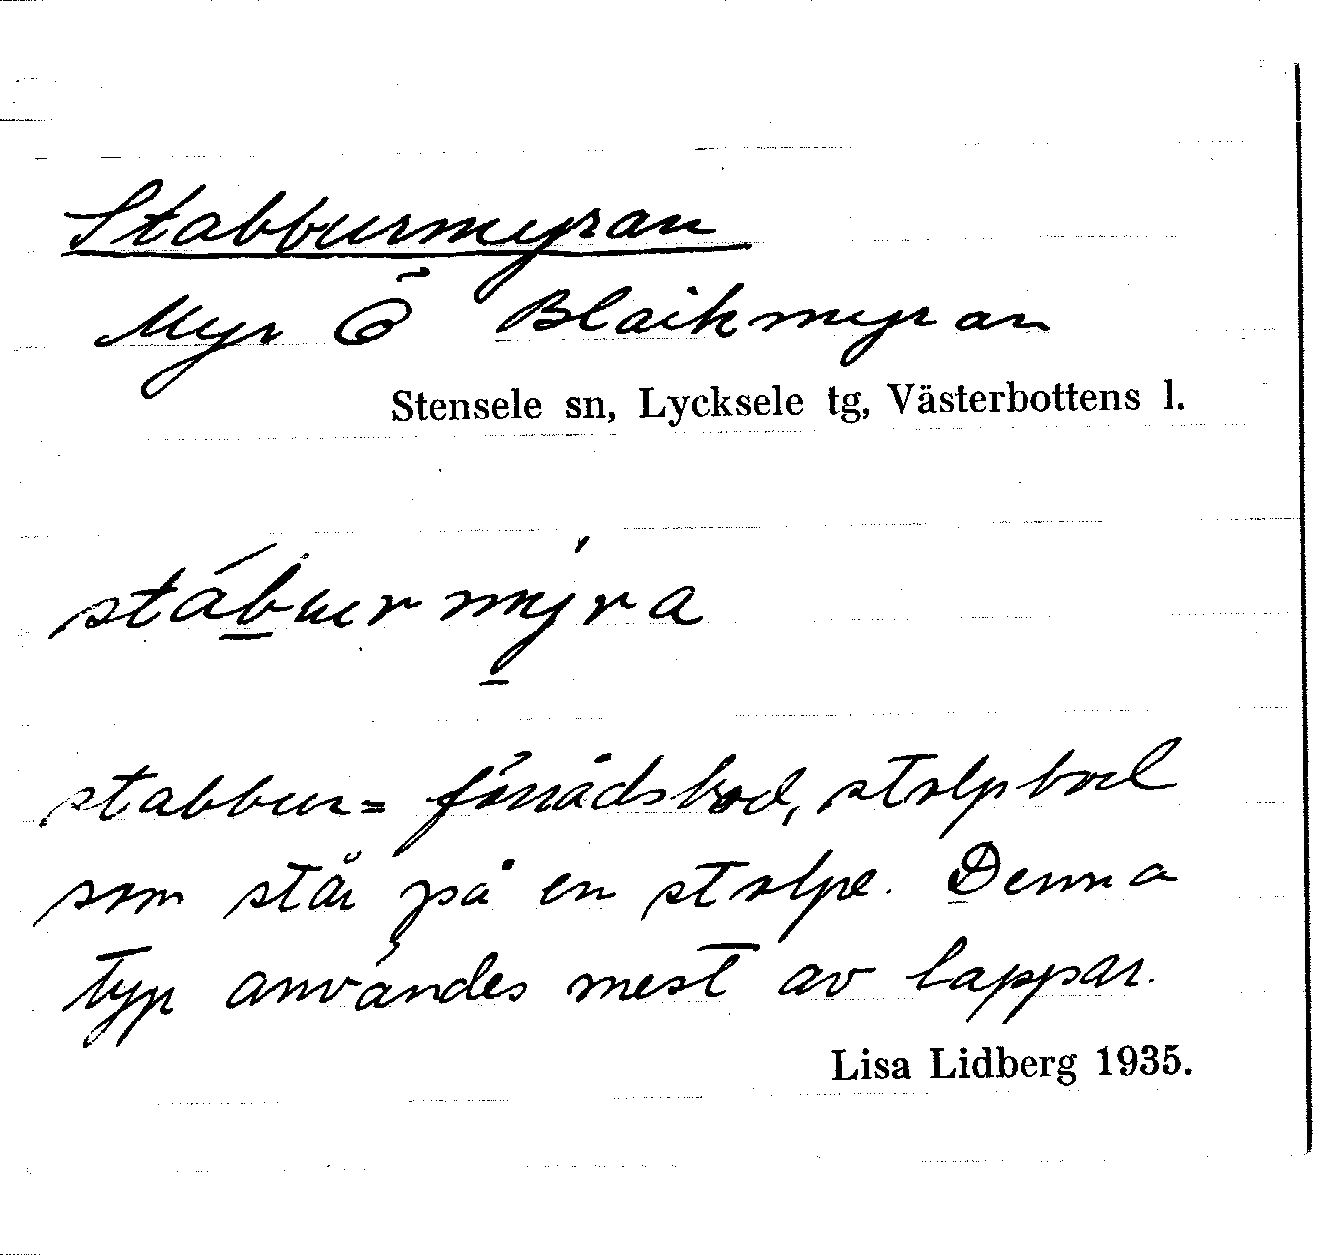 Stabburmyran
Myr Ö Blaikmyran
Stensele sn, Lycksele tg, Västerbottens l.
stábur mýra
stabbur = förrådsbod, stolpbod
som står på en stolpe. Denna
typ användes mest av lappar.
Lisa Lidberg 1935.